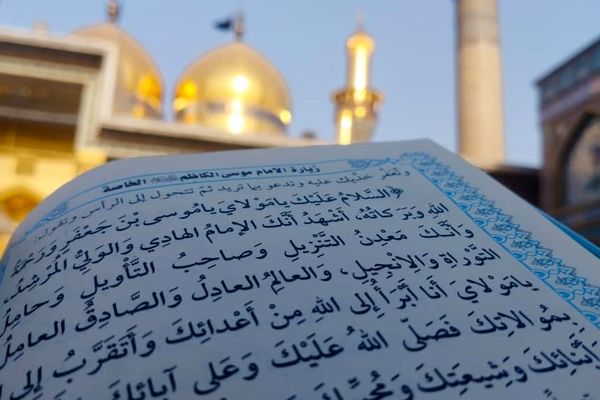 زيارة الامام موسى الكاظم الخاصة
وتعفر خديك عليه وتدعو بما تريد ثم تتحول إلى الرأس وتقول:
﴿السَّلامُ عَلَيْكَ يَامَوْلايَ يَامُوسى بْنَ جَعْفَرٍ وَرَحْمَةُ
اللهِ وَبَرَكَاتُهُ أَشْهَدُ أَنَّكَ الإمامُ الهَادِي وَالوَلِيُّ المُرْشِدُ،
وَأَنَّكَ مَعْدِنُ التَّنْزِيلِ وَصَاحِبُ التَّأْوِيلِ وَحَامِلُ
التَّوْرَاةِ وَالإِنْجِيلِ، وَالعَالِمُ العَادِلُ وَالصَّادِقُ العَامِلُ
يَامَوْلايَ أَنَا أَبْرَأُ إِلى اللهِ مِنْ أَعْدَائِكَ وَأَتَقَرَّبُ إِلى
بِمُوَالاتِكَ فَصَلَّى اللهُ عَلَيْكَ وَعَلى آبائِكَ
وَأَبْنَائِكَ وَشِيعَتِكَ وَمُحِبِّيكَ